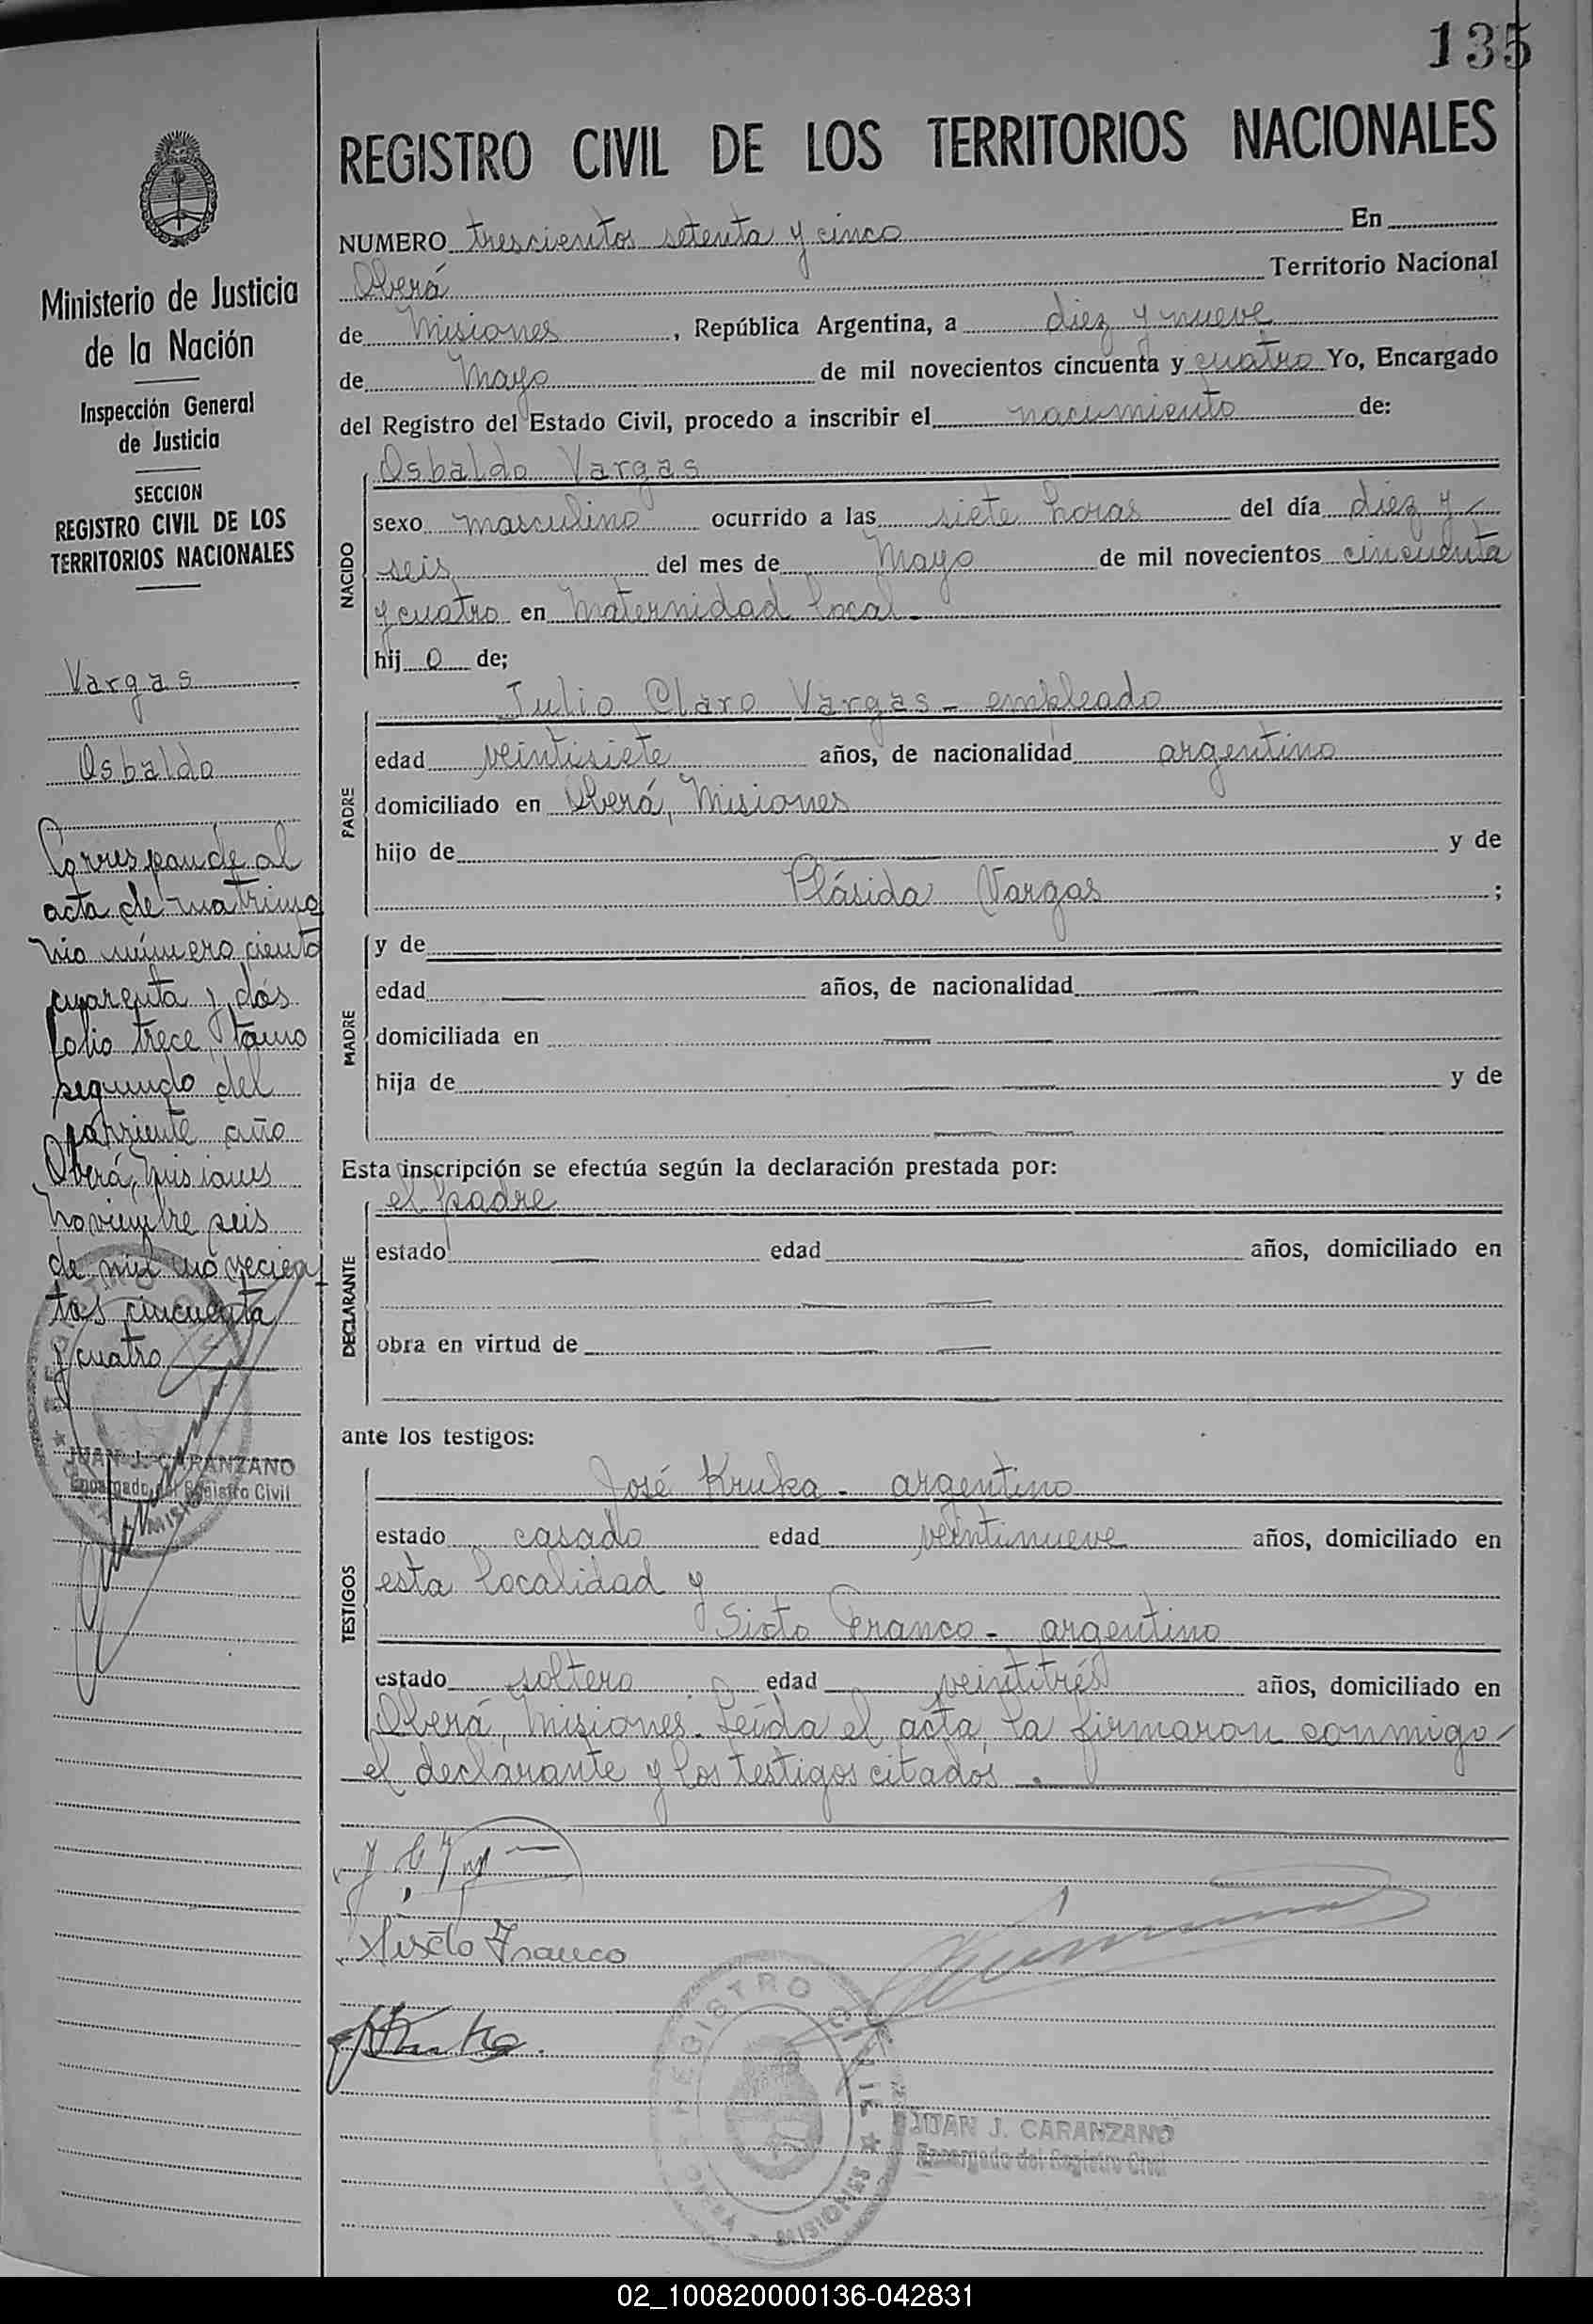 135
REGISTRO CIVIL DE LOS TERRITORIOS NACIONALES
Ministerio de Justicia
de la Nación
Inspección General
de Justicia
SECCION
REGISTRO CIVIL DE LOS
TERRITORIOS NACIONALES
Vargas
Osbaldo
Corresponde al
acta de matrimo
nio número ciento
cuarenta y dos
folio trece, tomo
segundo del
corriente año
Oberá, Misiones
noviembre seis
de mil novecien
tos cincuenta
y cuatro
JUAN J. CARANZANO
Encargado del Registro Civil
NUMERO trescientos setenta y cinco En
Oberá Territorio Nacional
de Misiones, República Argentina, a diez y nueve
de Mayo de mil novecientos cincuenta y cuatro Yo, Encargado
del Registro del Estado Civil, procedo a inscribir el nacimiento de:
NACIDO
Osbaldo Vargas
sexo masculino ocurrido a las siete horas del día diez y
seis del mes de Mayo de mil novecientos cincuenta
y cuatro en Maternidad local.-
hijo de;
PADRE
Julio Claro Vargas - empleado
edad veintisiete años, de nacionalidad argentino
domiciliado en Oberá, Misiones
hijo de y de
Plásida Vargas ;
MADRE
y de
edad años, de nacionalidad
domiciliada en
hija de y de
Esta inscripción se efectúa según la declaración prestada por:
DECLARANTE
el padre
estado edad años, domiciliado en
obra en virtud de
ante los testigos:
TESTIGOS
José Kruka - argentino
estado casado edad veintinueve años, domiciliado en
esta localidad y
Sixto Franco - argentino
estado soltero edad veintitrés años, domiciliado en
Oberá, Misiones. Leída el acta, la firmaron conmigo
el declarante y los testigos citados.
Sixto Franco
REGISTRO CIVIL
OBERA MISIONES
JUAN J. CARANZANO
Encargado del Registro Civil
02_100820000136-042831